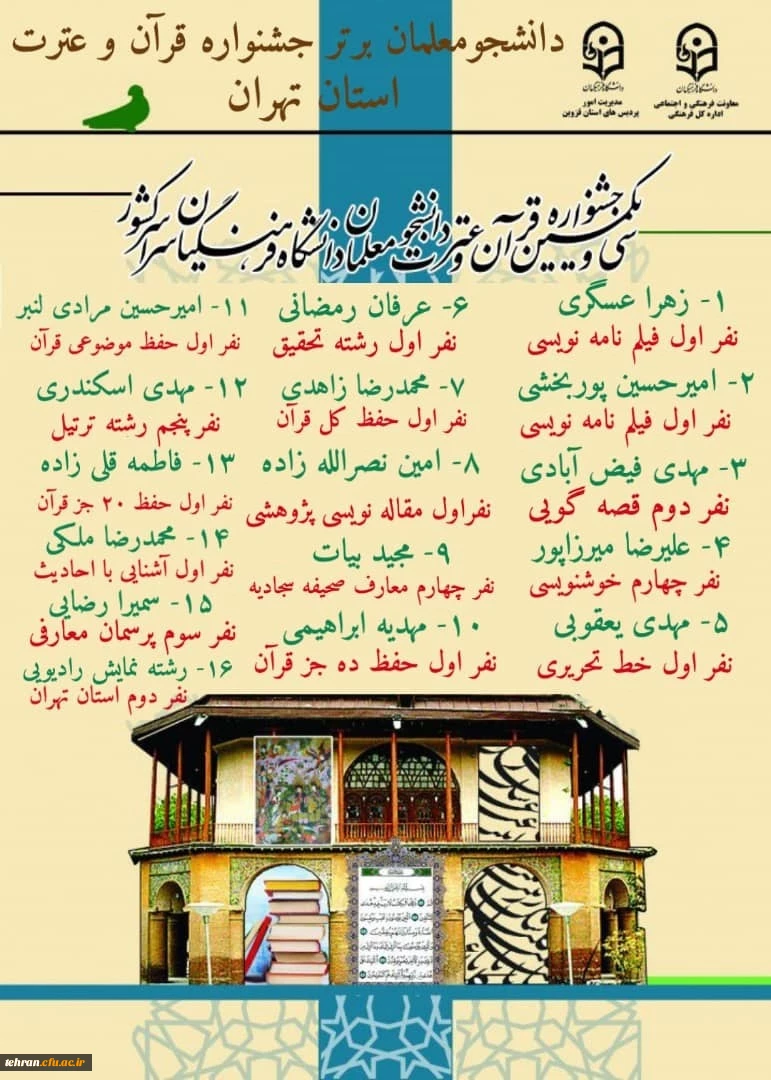 دانشجومعلمان برتر جشنواره قرآن و عترت
استان تهران
دانشگاه فرهنگیان
معاونت فرهنگی و اجتماعی
اداره کل فرهنگی
دانشگاه فرهنگیان
مدیریت امور
پردیس های استان قزوین
سی و یکمین جشنواره قرآن و عترت دانشجو معلمان دانشگاه فرهنگیان سراسر کشور
۱- زهرا عسگری
نفر اول فیلم نامه نویسی
۲- امیرحسین پوربخشی
نفر اول فیلم نامه نویسی
۳- مهدی فیض آبادی
نفر دوم قصه گویی
۴- علیرضا میرزاپور
نفر چهارم خوشنویسی
۵- مهدی یعقوبی
نفر اول خط تحریری
۶- عرفان رمضانی
نفر اول رشته تحقیق
۷- محمدرضا زاهدی
نفر اول حفظ کل قرآن
۸- امین نصرالله زاده
نفراول مقاله نویسی پژوهشی
۹- مجید بیات
نفر چهارم معارف صحیفه سجادیه
۱۰- مهدیه ابراهیمی
نفر اول حفظ ده جز قرآن
۱۱- امیرحسین مرادی لنبر
نفر اول حفظ موضوعی قرآن
۱۲- مهدی اسکندری
نفر پنجم رشته ترتیل
۱۳- فاطمه قلی زاده
نفر اول حفظ ۲۰ جز قرآن
۱۴- محمدرضا ملکی
نفر اول آشنایی با احادیث
۱۵- سمیرا رضایی
نفر سوم پرسمان معارفی
۱۶- رشته نمایش رادیویی
نفر دوم استان تهران
tehran.cfu.ac.ir